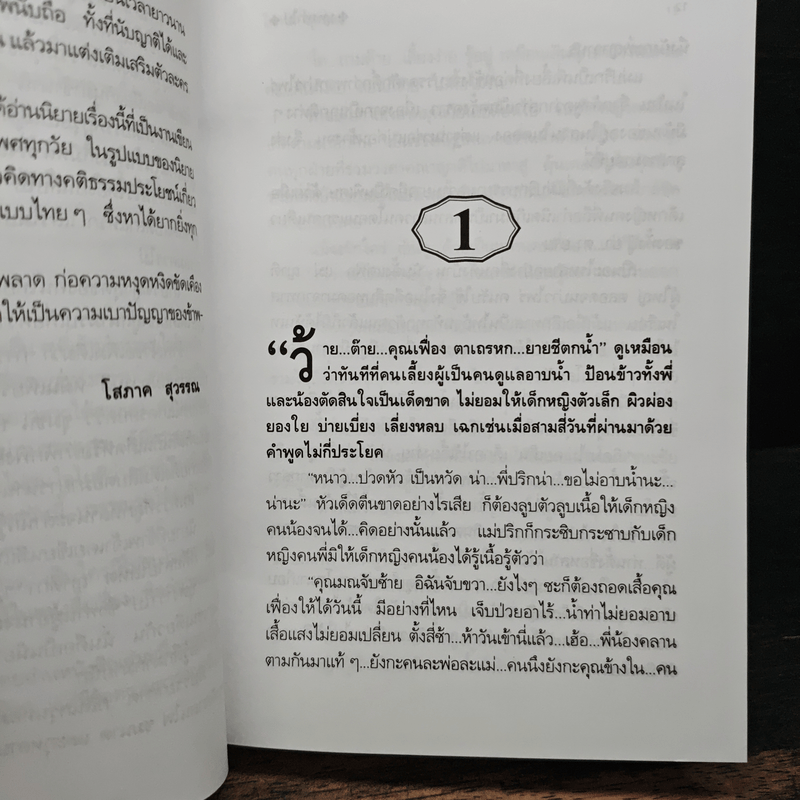 เป็นเวลายาวนาน
พนับถือ ทั้งที่นับญาติได้และ
น แล้วมาแต่งเติมเสริมตัวละคร
ด้อ่านนิยายเรื่องนี้ที่เป็นงานเขียน
เพศทุกวัย ในรูปแบบของนิยาย
คิดทางคติธรรมประโยชน์เกี่ยว
แบบไทย ๆ ซึ่งหาได้ยากยิ่งทุก
พลาด ก่อความหงุดหงิดขัดเคือง
ให้เป็นความเบาปัญญาของข้าพ-
โสภาค สุวรรณ
1
“ว้าย...ต๊าย...คุณเฟื่อง ตาเถรหก...ยายชีตกน้ำ” ดูเหมือน
ว่าทันทีที่คนเลี้ยงผู้เป็นคนดูแลอาบน้ำ ป้อนข้าวทั้งพี่
และน้องตัดสินใจเป็นเด็ดขาด ไม่ยอมให้เด็กหญิงตัวเล็ก ผิวผ่อง
ยองใย บ่ายเบี่ยง เลี่ยงหลบ เฉกเช่นเมื่อสามสี่วันที่ผ่านมาด้วย
คำพูดไม่กี่ประโยค
“หนาว...ปวดหัว เป็นหวัด น่า...พี่ปริกน่า...ขอไม่อาบน้ำนะ...
น่านะ” หัวเด็ดตีนขาดอย่างไรเสีย ก็ต้องลูบตัวลูบเนื้อให้เด็กหญิง
คนน้องจนได้...คิดอย่างนั้นแล้ว แม่ปริกก็กระซิบกระซาบกับเด็ก
หญิงคนพี่มิให้เด็กหญิงคนน้องได้รู้เนื้อรู้ตัวว่า
“คุณมณจับซ้าย อิฉันจับขวา...ยังไงๆ ซะก็ต้องถอดเสื้อคุณ
เฟื่องให้ได้วันนี้ มีอย่างที่ไหน เจ็บป่วยอาไร้...น้ำท่าไม่ยอมอาบ
เสื้อแสงไม่ยอมเปลี่ยน ตั้งสี่ซ้า...ห้าวันเข้านี่แล้ว...เฮ้อ...พี่น้องคลาน
ตามกันมาแท้ ๆ...ยังกะคนละพ่อละแม่...คนนึงยังกะคุณข้างใน...คน